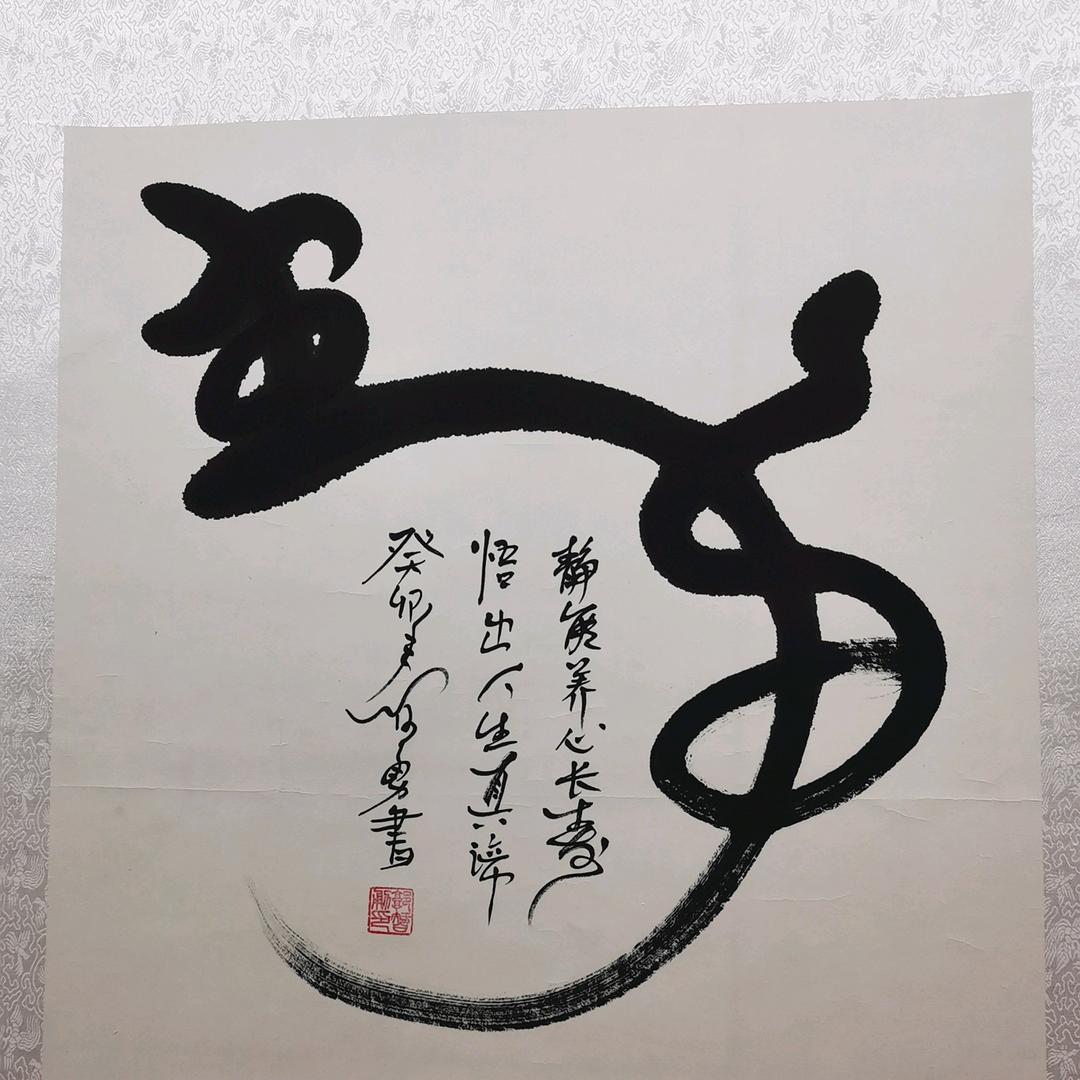 静能养心长寿
悟出人生真谛
癸卯勇書